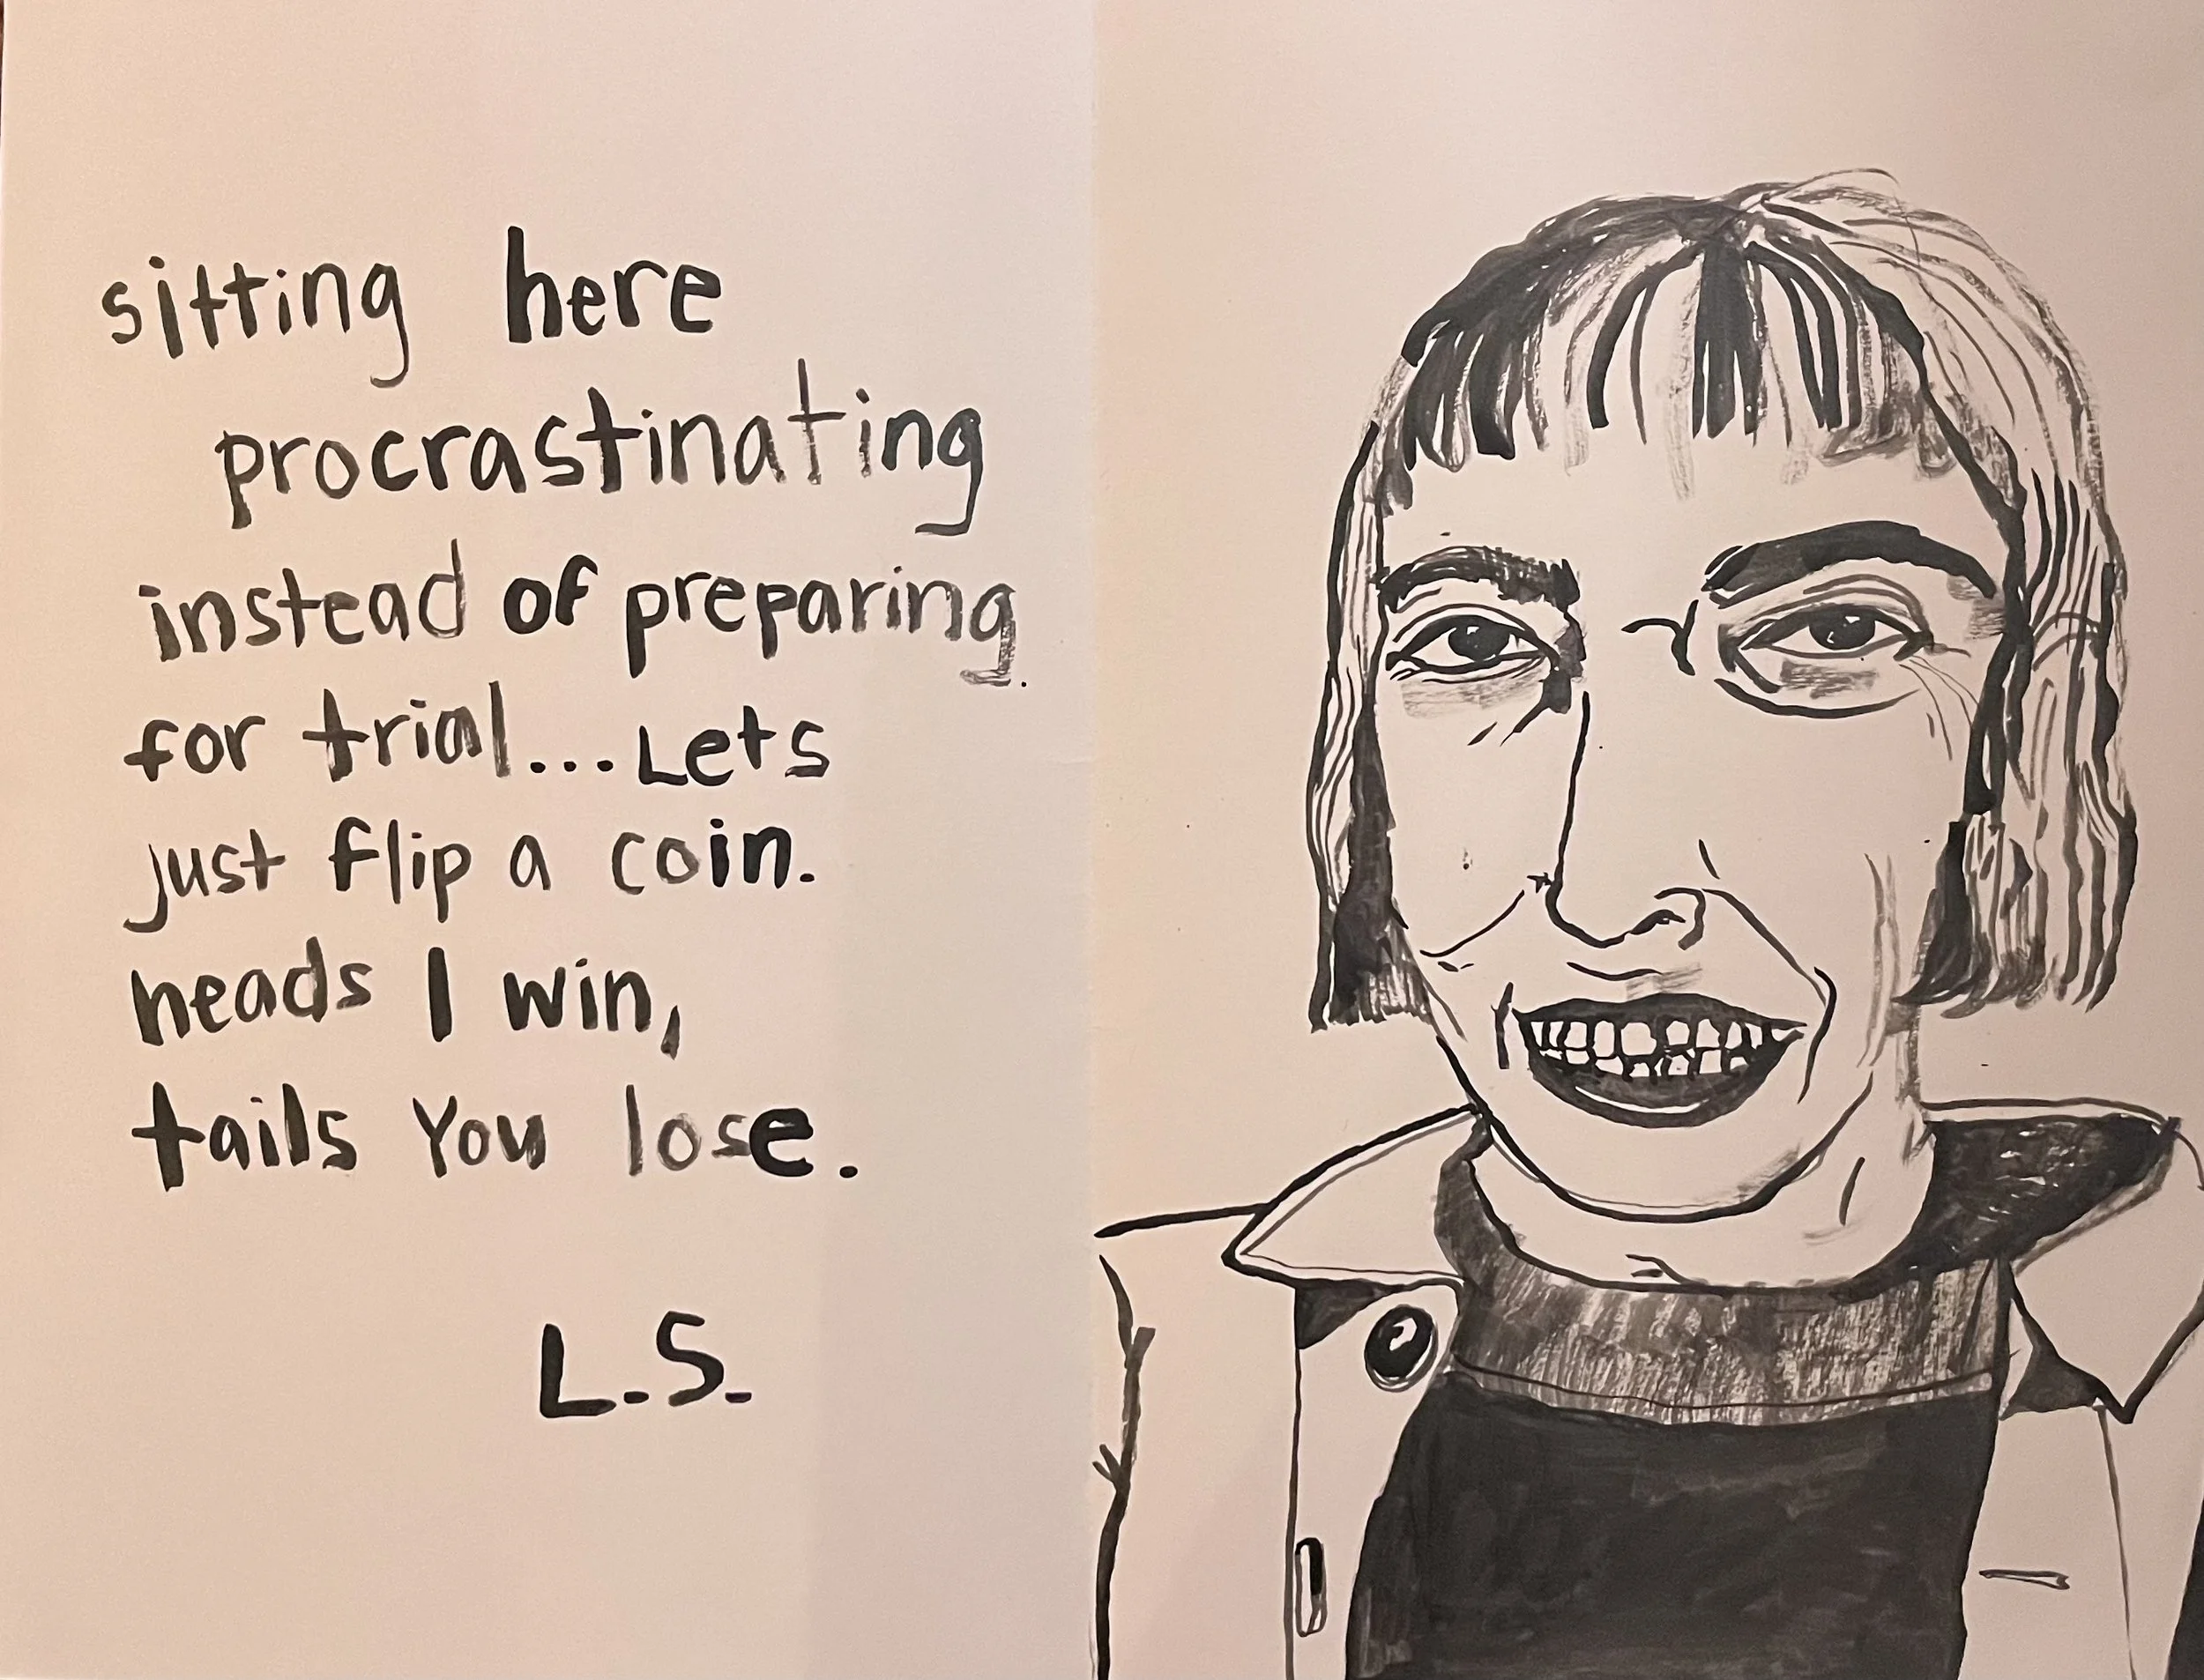 sitting here
procrastinating
instead of preparing.
for trial...Lets
just flip a coin.
heads I win,
tails You lose.
L.S.